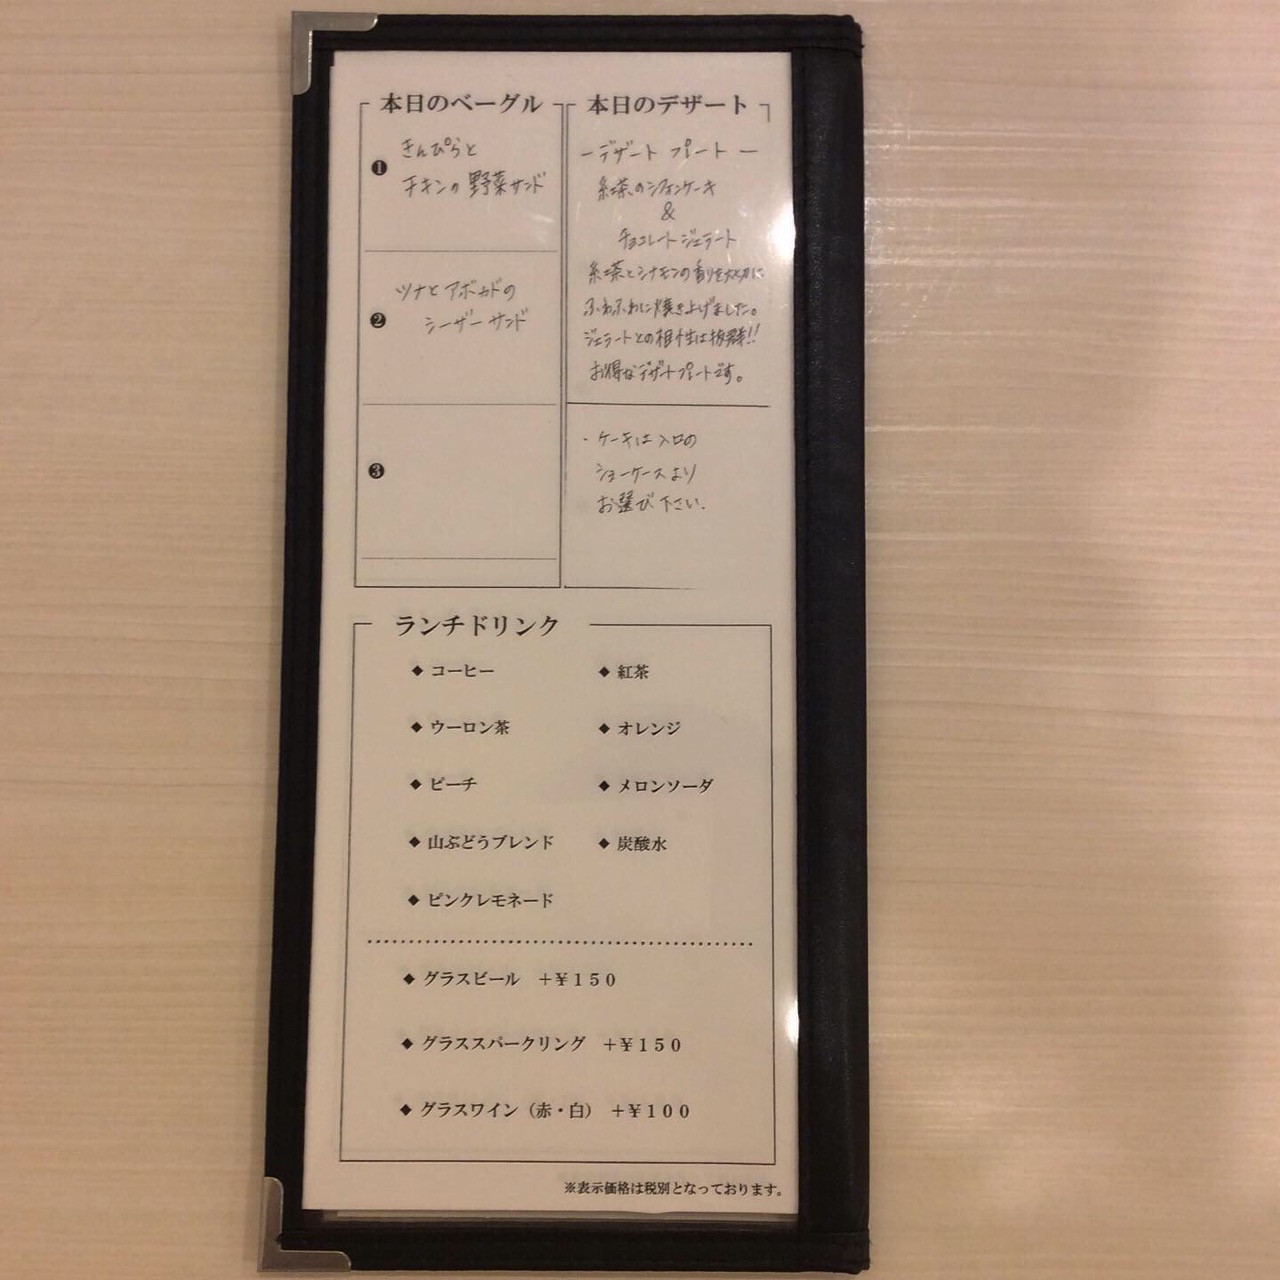 本日のベーグル
❶
きんぴらと
チキンの野菜サンド
❷
ツナとアボカドの
シーザーサンド
❸
本日のデザート
ーデザート プレートー
紅茶のシフォンケーキ
&
チョコレートジェラート
紅茶とシナモンの香りを大切に
ふわふわに焼き上げました。
ジェラートとの相性は抜群!!
お得なデザートプレートです。
・ケーキは入口の
ショーケースより
お選び下さい.
ランチドリンク
◆ コーヒー
◆ 紅茶
◆ ウーロン茶
◆ オレンジ
◆ ピーチ
◆ メロンソーダ
◆ 山ぶどうブレンド
◆ 炭酸水
◆ ピンクレモネード
◆ グラスビール +¥150
◆ グラススパークリング +¥150
◆ グラスワイン(赤・白) +¥100
※表示価格は税別となっております。